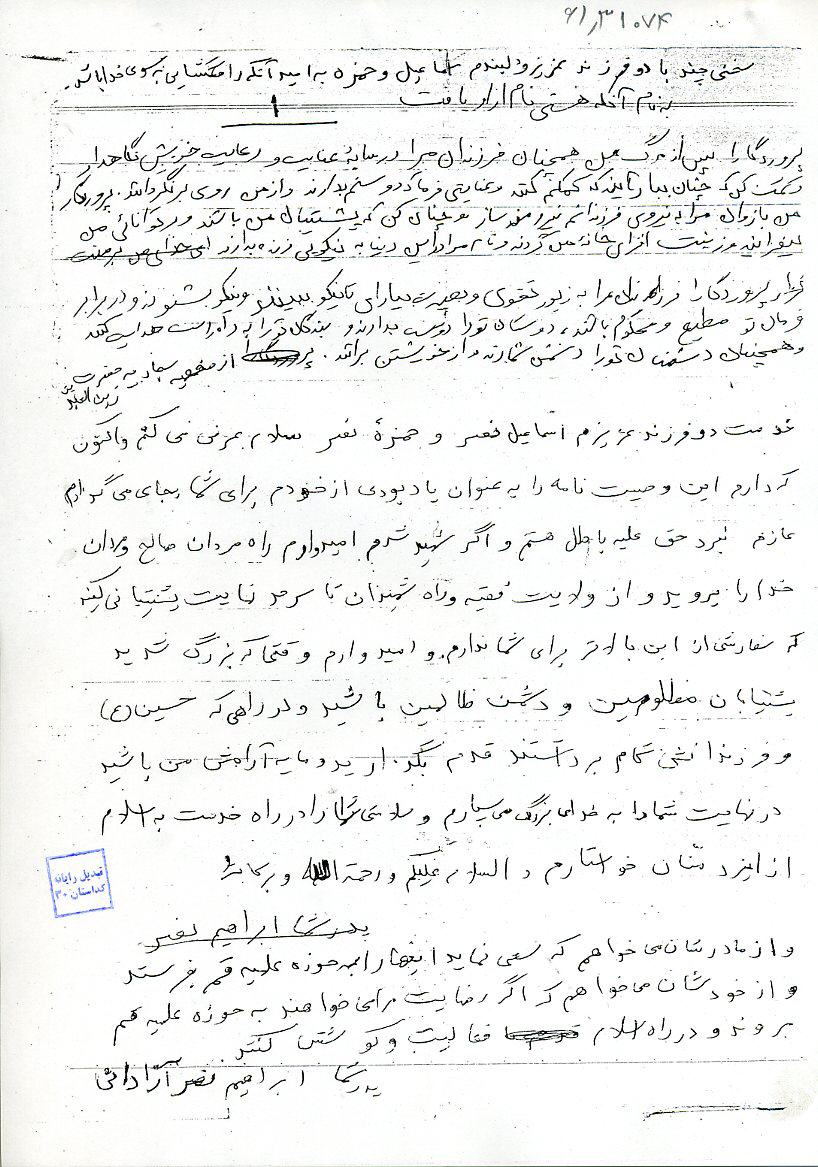 ۶۱٫۳۱۰۷۴
سخنی چند با دو فرزند عزیز و دلبندم اسماعیل و حمزه به امید آنکه راه گشایی به سوی خدا باشد.
به نام آنکه هستی نام از او یافت
۱
پروردگارا پس از مرگ من همچنان فرزندان مرا در سایه عنایت و رعایت خویش نگاهدار
کن که چنان بیارایند که کمکم کنند و عنایتی فرما که دوستم بدارند و از من روی برنگردانند. پروردگارا
من بازوان مرا به نیروی فرزندانم نیرومند ساز و چنان کن که پشتیبان من باشند و بر توانائی من
بیفزایند و زینت افزای خانه من گردند و نام مرا در این دنیا به نیکویی زنده بدارند
پروردگارا فرزندان مرا به زیور تقوی و بصیرت بیارای تا نیکو ببینند و نیکو بشنوند و در برابر
فرمان تو مطیع و محکوم باشند، دوستان تو را دوست بدارند و بندگان تو را به راه راست هدایت کنند
و همچنان دشمنان تو را دشمن شمارند و از خویشتن برانند. از صحیفه سجادیه حضرت
زین العابدین
خدمت دو فرزند عزیزم اسماعیل نصر و حمزهٔ نصر سلام عرض می کنم و اکنون
که دارم این وصیت نامه را به عنوان یادبودی از خودم برای شما بجای می گذارم
عازم نبرد حق علیه باطل هستم و اگر شهید شدم امیدوارم راه مردان صالح و مردان
خدا را بروید و از ولایت فقیه و راه شهیدان تا سرحد نهایت پشتیبانی کنید
که سفارشی از این بالاتر برای شما ندارم. و امیدوارم وقتی که بزرگ شدید
پشتیبان مظلومین و دشمن ظالمین باشید و در راهی که حسین (ع)
و فرزندانش گام برداشتند قدم بگذارید و مایه آرامش من باشید
در نهایت شما را به خدای بزرگ می سپارم و سلامتی شما را در راه خدمت به اسلام
از ایزد منان خواستارم و السلام علیکم و رحمة الله و برکاته
پدر شما ابراهیم نصر
و از مادرتان می خواهم که سعی نماید اینها را به حوزه علمیه قم بفرستد
و از خودشان می خواهم که اگر رضایت مرا می خواهند به حوزه علمیه قم
بروند و در راه اسلام فعالیت و کوشش کنند.
پدر شما ابراهیم نصر آزادانی
تبدیل رایانه